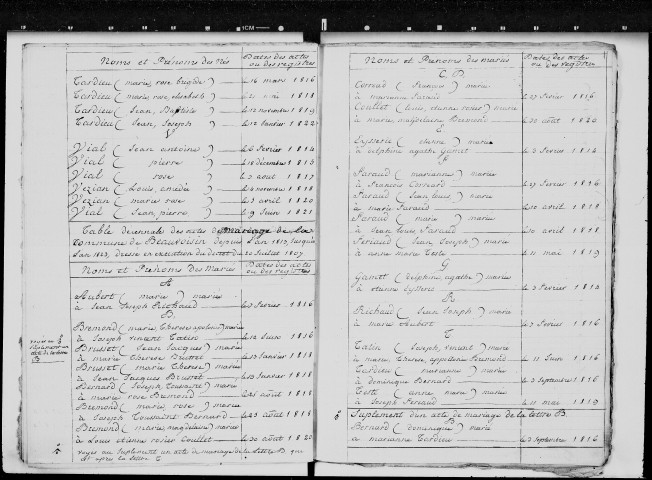 ICM
Noms et Prénoms des Nés
Dates des actes
ou des registres
Tardieu ( marie rose brigde ) le 16 mars 1816
Tardieu ( marie rose elisabeth ) le 21 mai 1818
Tardieu ( Jean Baptiste ) le 12 novembre 1819
Tardieu ( Jean Joseph ) le 12 Janvier 1822
V
Vial ( Jean antoine ) le 6 fevrier 1814
Vial ( pierre ) le 18 décembre 1815
Vial ( rose ) le 2 aout 1817
Vezian ( Louis amedée ) le novembre 1818
Vezian ( marie rose ) le 3 avril 1820
Vial ( Jean pierre ) le 9 Juin 1821
Table décennale des actes de mariage de la
Commune de Beauvoisin depuis l'an 1813, Jusqu'a
l'an 1823, dressé en execution du decret du 20 Juillet 1807
Noms et Prénoms des Mariés
Dates des actes
ou des registres
A
Aubert ( marie ) mariée
à Jean Joseph Richaud le 7 fevrier 1816
B
Bremond ( marie Therese apolonie ) mariée
à Joseph vincent Tatin le 12 Juin 1816
Brusset ( Jean Jacques ) marié
à marie Therese Brusset le 13 Janvier 1818
Brusset ( marie Therese ) mariée
à Jean Jacques Brusset le 13 Janvier 1818
Bernard ( Joseph Toussaint ) marié
à marie rose Bremond le 23 aout 1818
Bremond ( marie rose ) mariée
à Joseph Toussaint Bernard le 23 aout 1818
Bremond ( marie magdelaine ) mariée
à Louis etienne rosier Coullet le 30 aout 1820
voyés au Suplement un acte de mariage de la lettre B. qui
est après la lettre T
Noms et Prénoms des mariés
Dates des actes
ou des registres
C D
Corréard ( francois ) marié
à marianne Faraud le 27 fevrier 1816
Coullet ( Louis etienne rosier ) marié
à marie magdelaine Bremond le 30 aout 1820
E
Eysserie ( etienne ) marié
à delphine agathe Ganet le 3 fevrier 1814
F
Faraud ( marianne ) mariée
à francois Corréard le 27 fevrier 1816
Faraud ( Jean Louis ) marié
à marie Faraud le 20 avril 1818
Faraud ( marie ) mariée
à Jean Louis Faraud le 20 avril 1818
Ferraud ( Jean Joseph ) marié
à anne marie Teste le 11 mai 1819
G
Ganett ( delphine agathe ) mariée
à etienne Eysserie le 3 fevrier 1814
R
Richaud ( Jean Joseph ) marié
à marie Aubert le 7 fevrier 1816
T
Tatin ( Joseph vincent ) marié
à marie Therese appolonie Bremond le 11 Juin 1816
Tardieu ( marianne ) mariée
à dominique Bernard le 3 Septembre 1816
Teste ( anne marie ) mariée
à Joseph Ferraud le 11 mai 1819
Suplement d'un acte de mariage de la lettre B.
Bernard ( dominique ) marié
à marianne Tardieu le 3 Septembre 1816